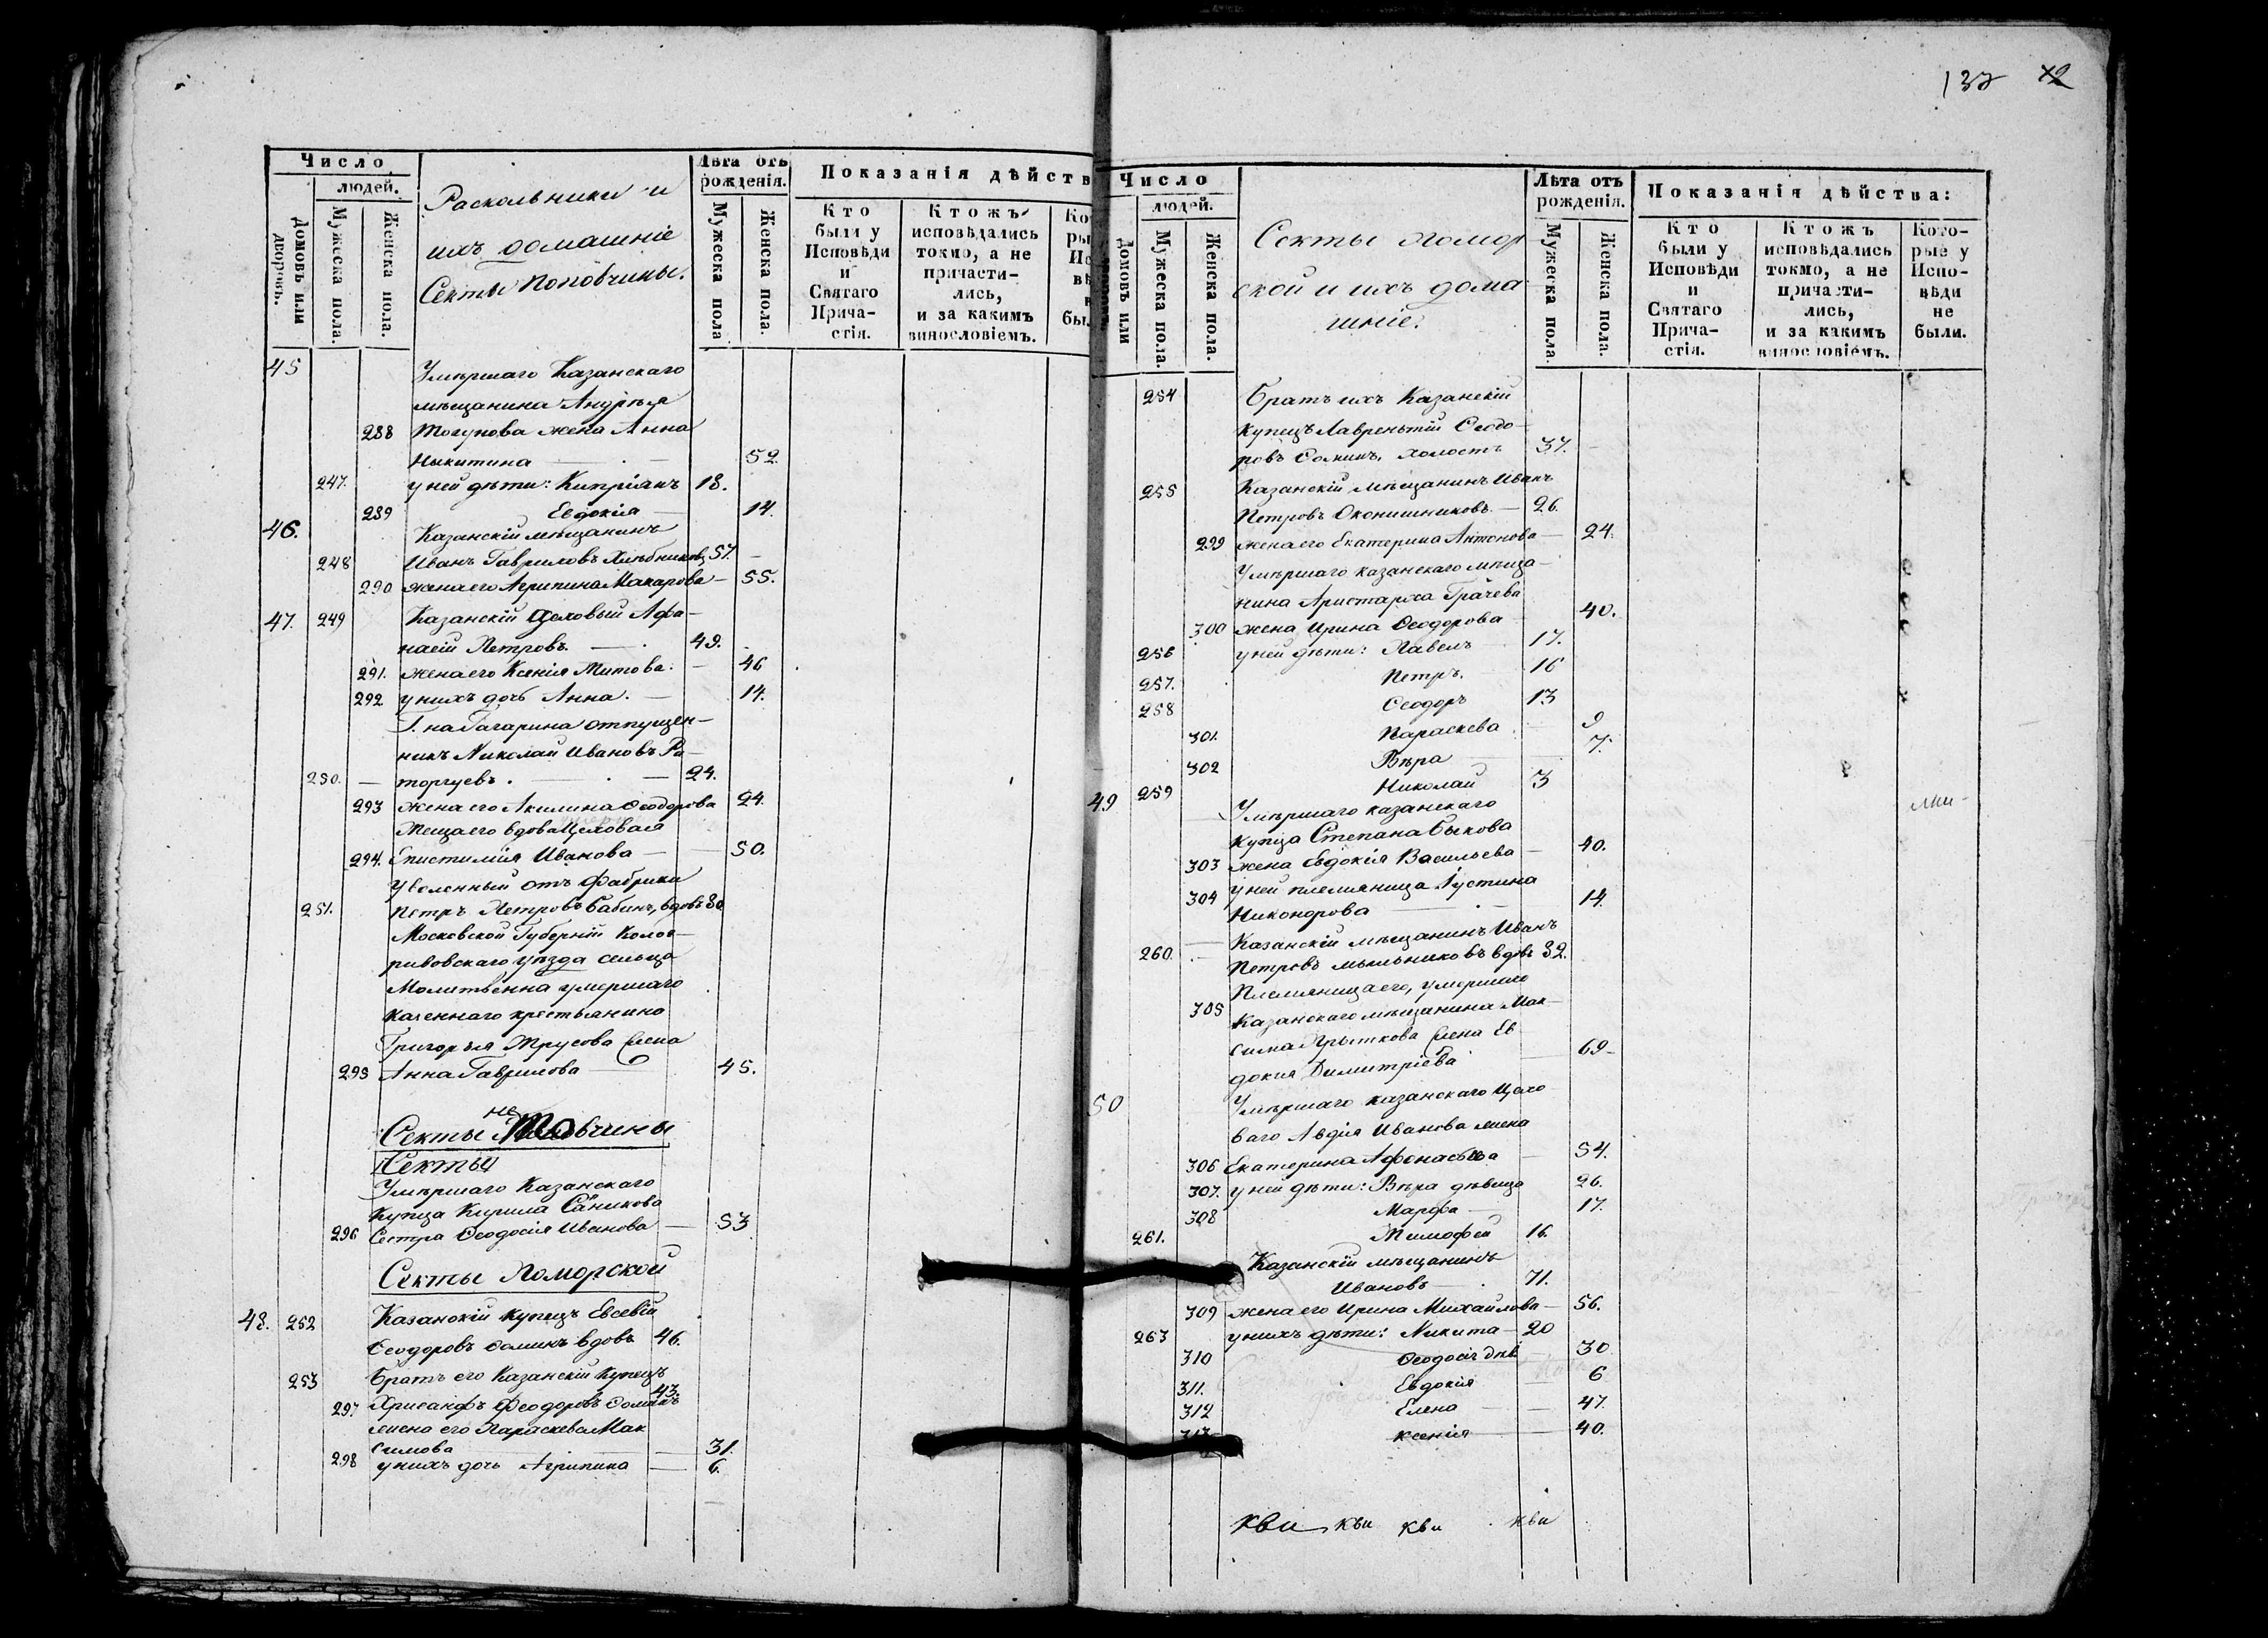 137 42
Число
людей.
Домовъ или дворовъ.
Мужеска пола.
Женска пола.
Раскольники и
ихъ домашніе
Секты Поповчины.
Лѣта отъ рожденія.
Мужеска пола
Женска пола.
Показанія дѣйств
Кто были у Исповѣди и Святаго Причастія.
Ктожъ исповѣдались токмо, а не причастились, и за какимъ винословіемъ.
45 Умѣршаго Казанскаго
мѣщанина Андрѣя
288 жена Анна
Никитина 52.
247. у ней дѣти: Кипріанъ 18.
289 Евдокія 14.
46. Казанскій мѣщанинъ
248 Иванъ Гавриловъ Хлѣбниковъ 57.
290 жена его Агрипина Макарова 55.
47. 249 Казанскій Цеховый Афа-
насій Петровъ 49.
291. жена его Ксенія Митова. 46
292 у нихъ дочь Анна. 14.
Г. на Гагарина отпущен-
никъ Николай Ивановъ Ра-
250. торгуевъ. 24.
293 жена его Акилина Ѳеодорова 24.
Теща его вдова Цеховая
294. Епистимія Иванова 50.
Уволенный отъ Фабрики
251. Петръ Петровъ Бабинъ, вдовъ 80
Московской Губерніи
уѣзда сельца
умершаго
казеннаго крестьянина
Григорья Трусова жена
295 Анна Гаврилова 45.
Секты не Поповчины
Секты
Умѣршаго Казанскаго
Купца Кирила Саникова
296 Сестра Ѳеодосія Иванова 53
Секты Поморской
48. 252 Казанскій купецъ Евсевій
Ѳеодоровъ Ѳоминъ вдовъ 46.
253 Братъ его Казанскій купецъ
297 Хрисанфъ Феодоровъ Ѳоминъ 43.
жена его Параскева Мак
симова 31.
298 у нихъ дочь Агрипина 6.
Число
людей.
Домовъ или
Мужеска пола.
Женска пола.
Секты помор
ской и ихъ дома
шніе.
Лѣта отъ рожденія.
Мужеска пола.
Женска пола.
Показанія дѣйства:
Кто были у Исповѣди и Святаго Причастія.
Ктожъ исповѣдались токмо, а не причастились, и за какимъ винословіемъ.
Которые у Исповѣди не были.
254 Братъ ихъ Казанскій
купецъ Лаврентій Ѳеодо-
ровъ Ѳоминъ, холостъ 37.
255 Казанскій мѣщанинъ Иванъ
Петровъ Оконишниковъ 26.
299 жена его Екатерина Антонова 24.
Умѣршаго казанскаго мѣща-
нина Аристарха Грачева
300 жена Ирина Ѳеодорова 40.
256 у ней дѣти: Павелъ 17.
257. Петръ. 16
258 Ѳеодоръ 13
301. Параскева 9
302 Вѣра 7.
259 Николай 3
49 Умѣршаго казанскаго
купца Степана Быкова
303 жена Евдокія Васильева 40.
304 у ней племянница Іустина
Никонорова 14.
Казанскій мѣщанинъ Иванъ
260. Петровъ мыльниковъ вдовъ 32.
Племянница его, умершаго
305 Казанскаго мѣщанина Мак-
сима жена Ев
докия Димитріева 69
50 Умѣршаго казанскаго Цехо
ваго Авдія Иванова жена
306 Екатерина Афонасьева 54.
307. у ней дѣти: Вѣра дѣвица 26.
308 Марфа 17.
261. Тимофей 16.
Казанскій мѣщанинъ
Ивановъ 71.
309 жена его Ирина Михайлова 56.
263 у нихъ дѣти: Никита 20
310 Ѳеодосія дѣв. 30
311. Евдокія 6
312 Елена 47.
313 Ксенія 40.
кви кви кви кви